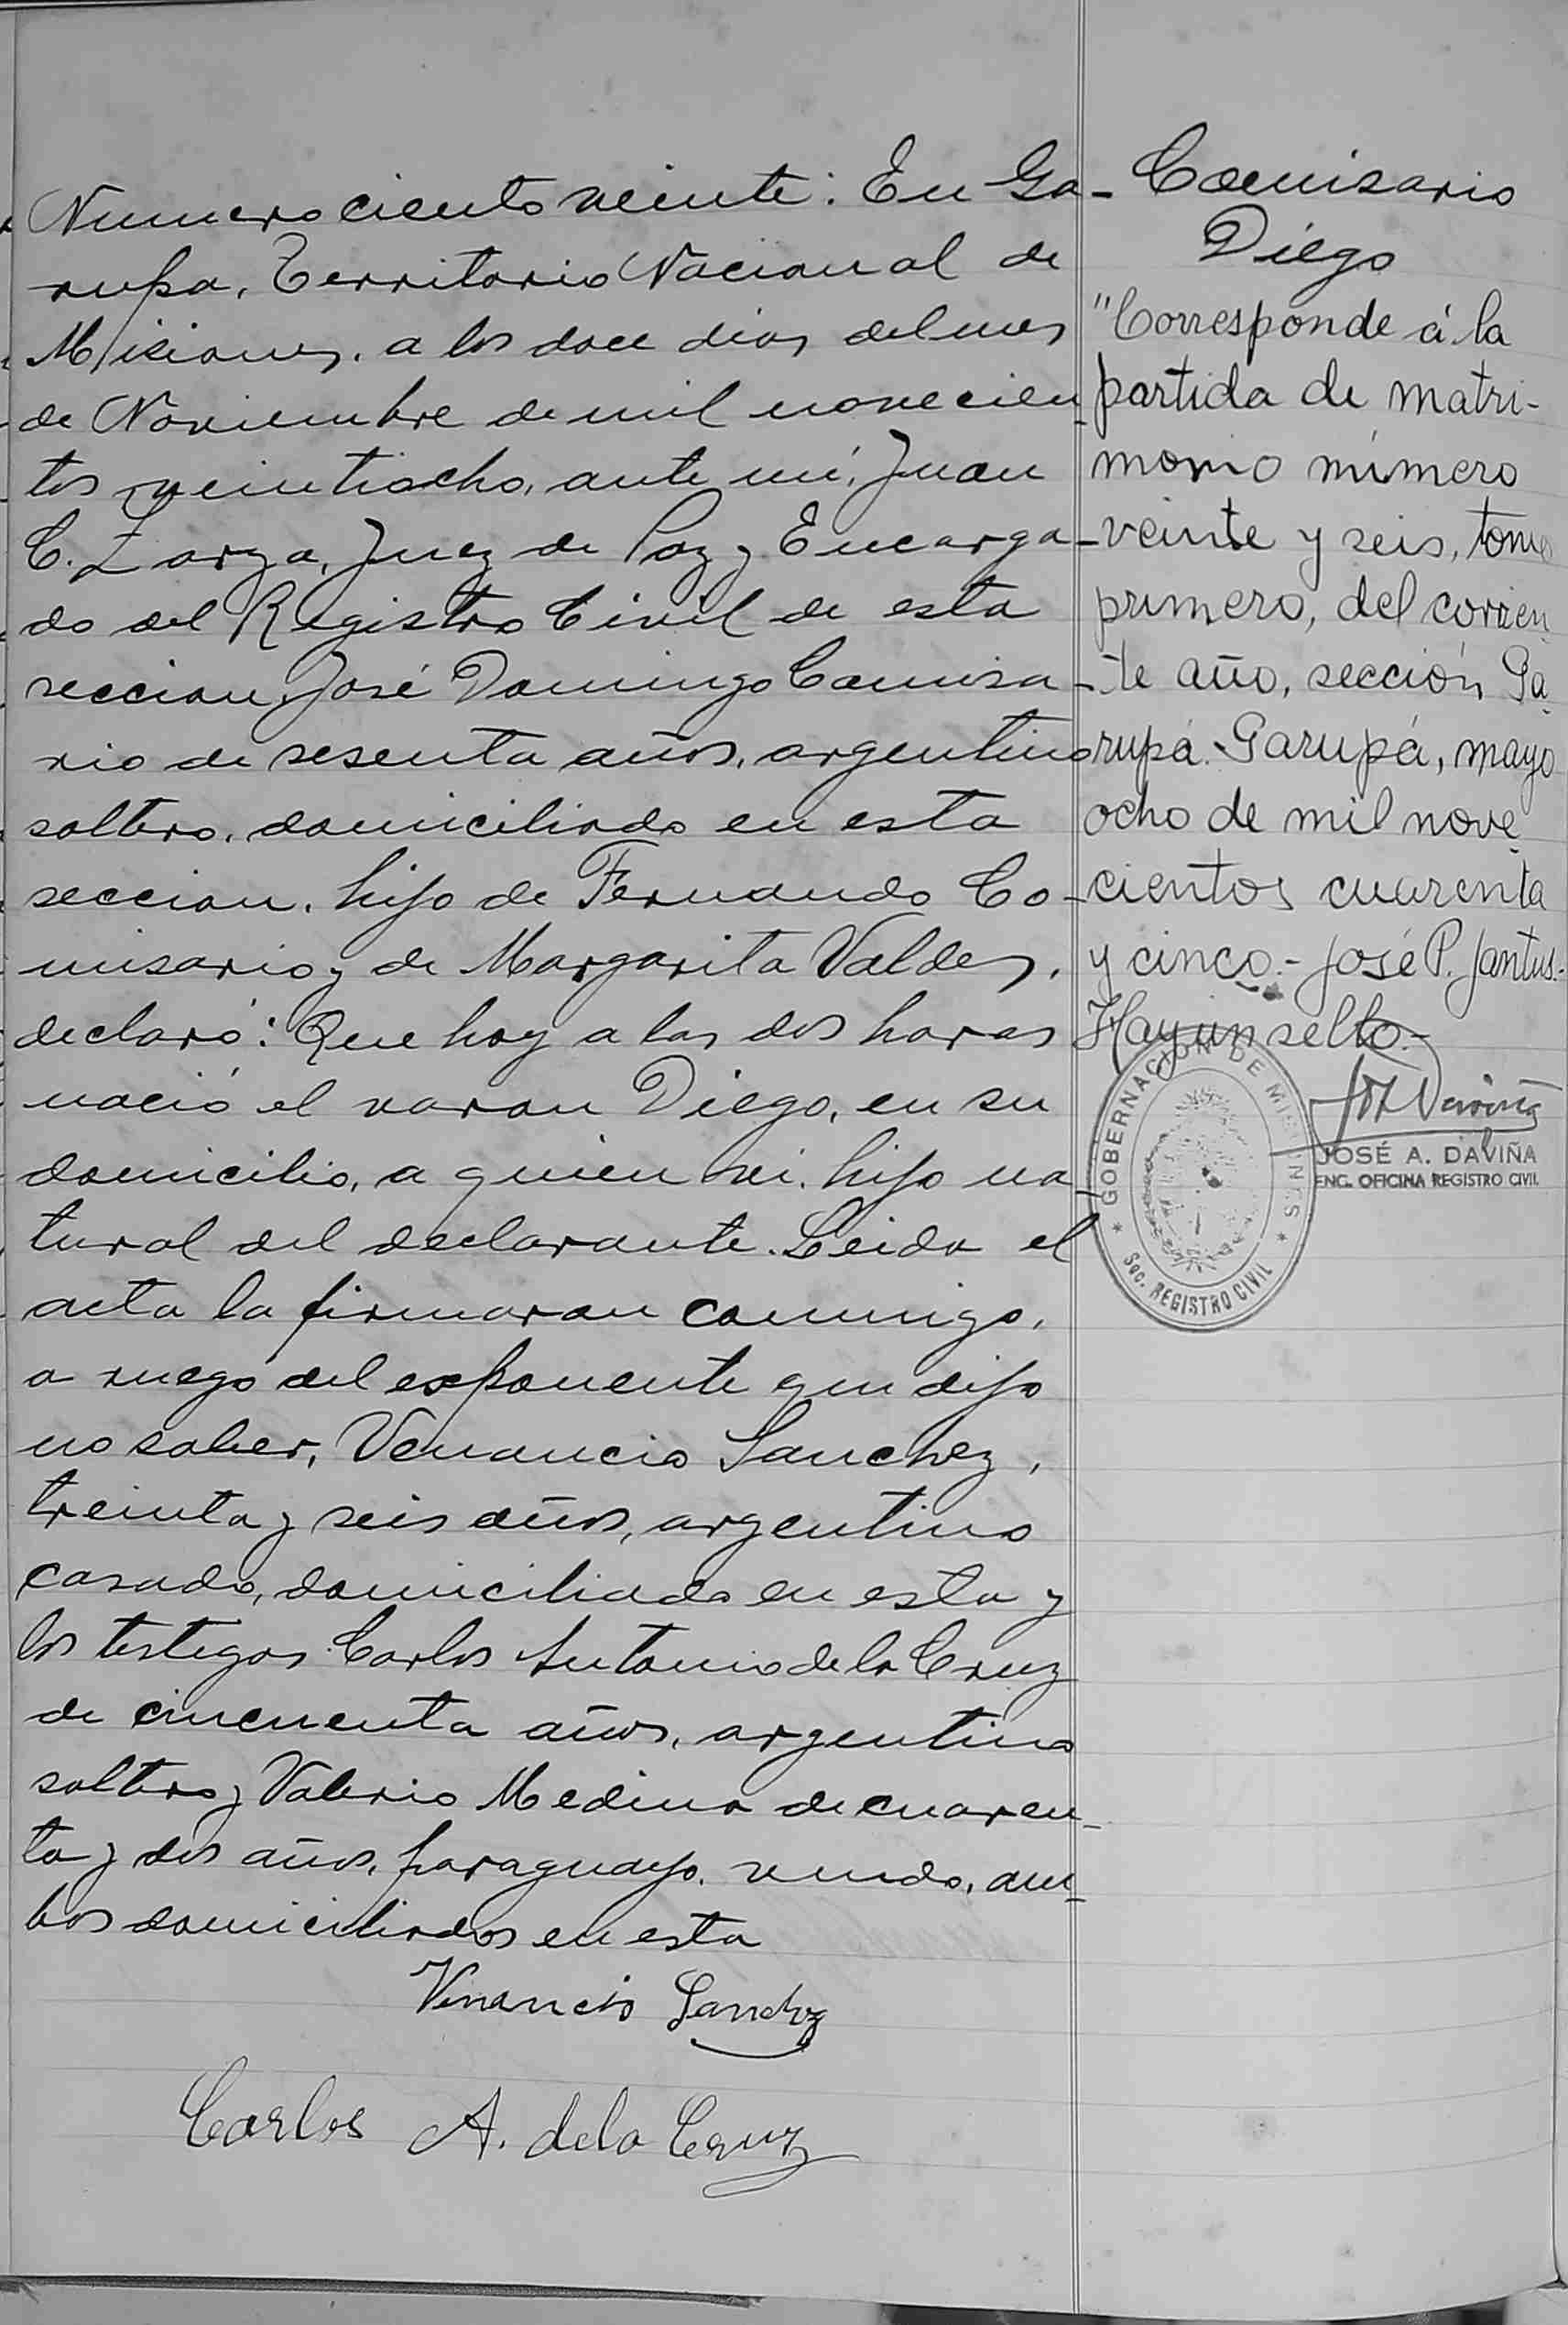 Numero ciento veinte: En Ga-
rupa, Territorio Nacional de
Misiones, a los doce dias del mes
de Noviembre de mil novecien-
tos veintiocho, ante mi, Juan
C. Zarza, Juez de Paz y Encarga-
do del Registro Civil de esta
seccion, José Domingo Comisa-
rio de sesenta años, argentino
soltero, domiciliado en esta
seccion, hijo de Fernando Co-
misario y de Margarita Valdes,
declaró: Que hoy a las dos horas
nació el varon Diego, en su
domicilio, a quien vi, hijo na-
tural del declarante. Leida el
acta la firmaron conmigo,
a ruego del exponente que dijo
no saber, Venancio Sanchez,
treinta y seis años, argentino
casado, domiciliado en esta y
los testigos Carlos Antonio de la Cruz
de cincuenta años, argentino
soltero y Valerio Medina de cuaren-
ta y dos años, paraguayo, viudo, am-
bos domiciliados en esta
Venancio Sanchez
Carlos A. de la Cruz
Comisario
Diego
"Corresponde á la
partida de matri-
monio número
veinte y seis, tomo
primero, del corrien-
te año, sección Ga-
rupá. Garupá, mayo
ocho de mil nove-
cientos cuarenta
y cinco.- José P. Jantus.-
Hay un sello.-
GOBERNACION DE MISIONES
Sec. REGISTRO CIVIL
JOSÉ A. DAVIÑA
ENC. OFICINA REGISTRO CIVIL